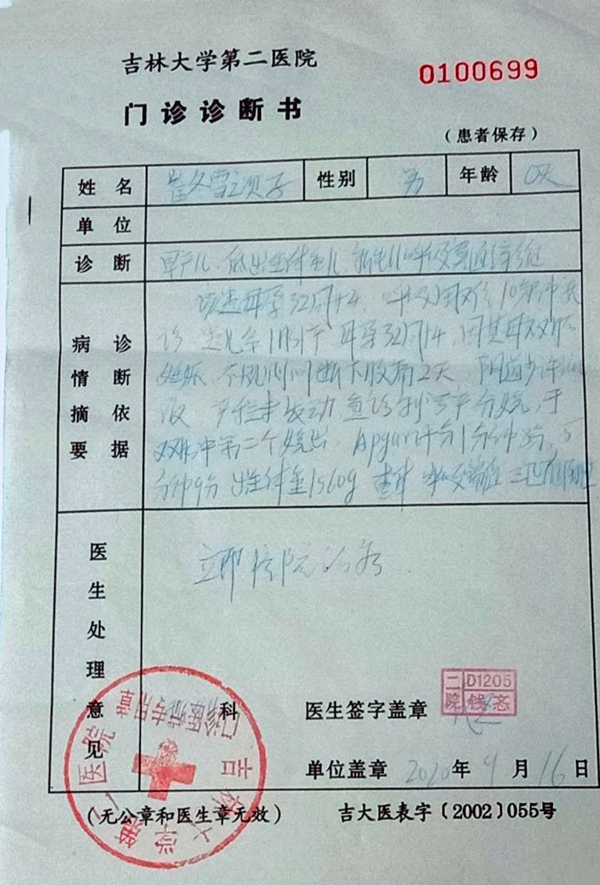 吉林大学第二医院
0100699
门诊诊断书
(患者保存)
姓名 性别 男 年龄 0天
单位
诊断 早产儿, 低出生体重儿, 新生儿呼吸窘迫综
病情摘要 诊断依据
该患母孕32周+4, 10分钟
诊 患儿 母孕32周+4, 因其母双胎
妊娠, 不规则 下腹痛2天, 阴道少许
产程 发动 急诊 分娩, 于
双胎中第二个娩出, Apgar评分1分钟 分, 5
分钟9分 出生体重1560g 查体 三凹征阳性
医生处理意见
立即住院治疗.
科
医生签字盖章
二院 D1205
单位盖章 2020年9月16日
吉林大学第二医院
门诊医疗专用章
(无公章和医生章无效) 吉大医表字〔2002〕055号